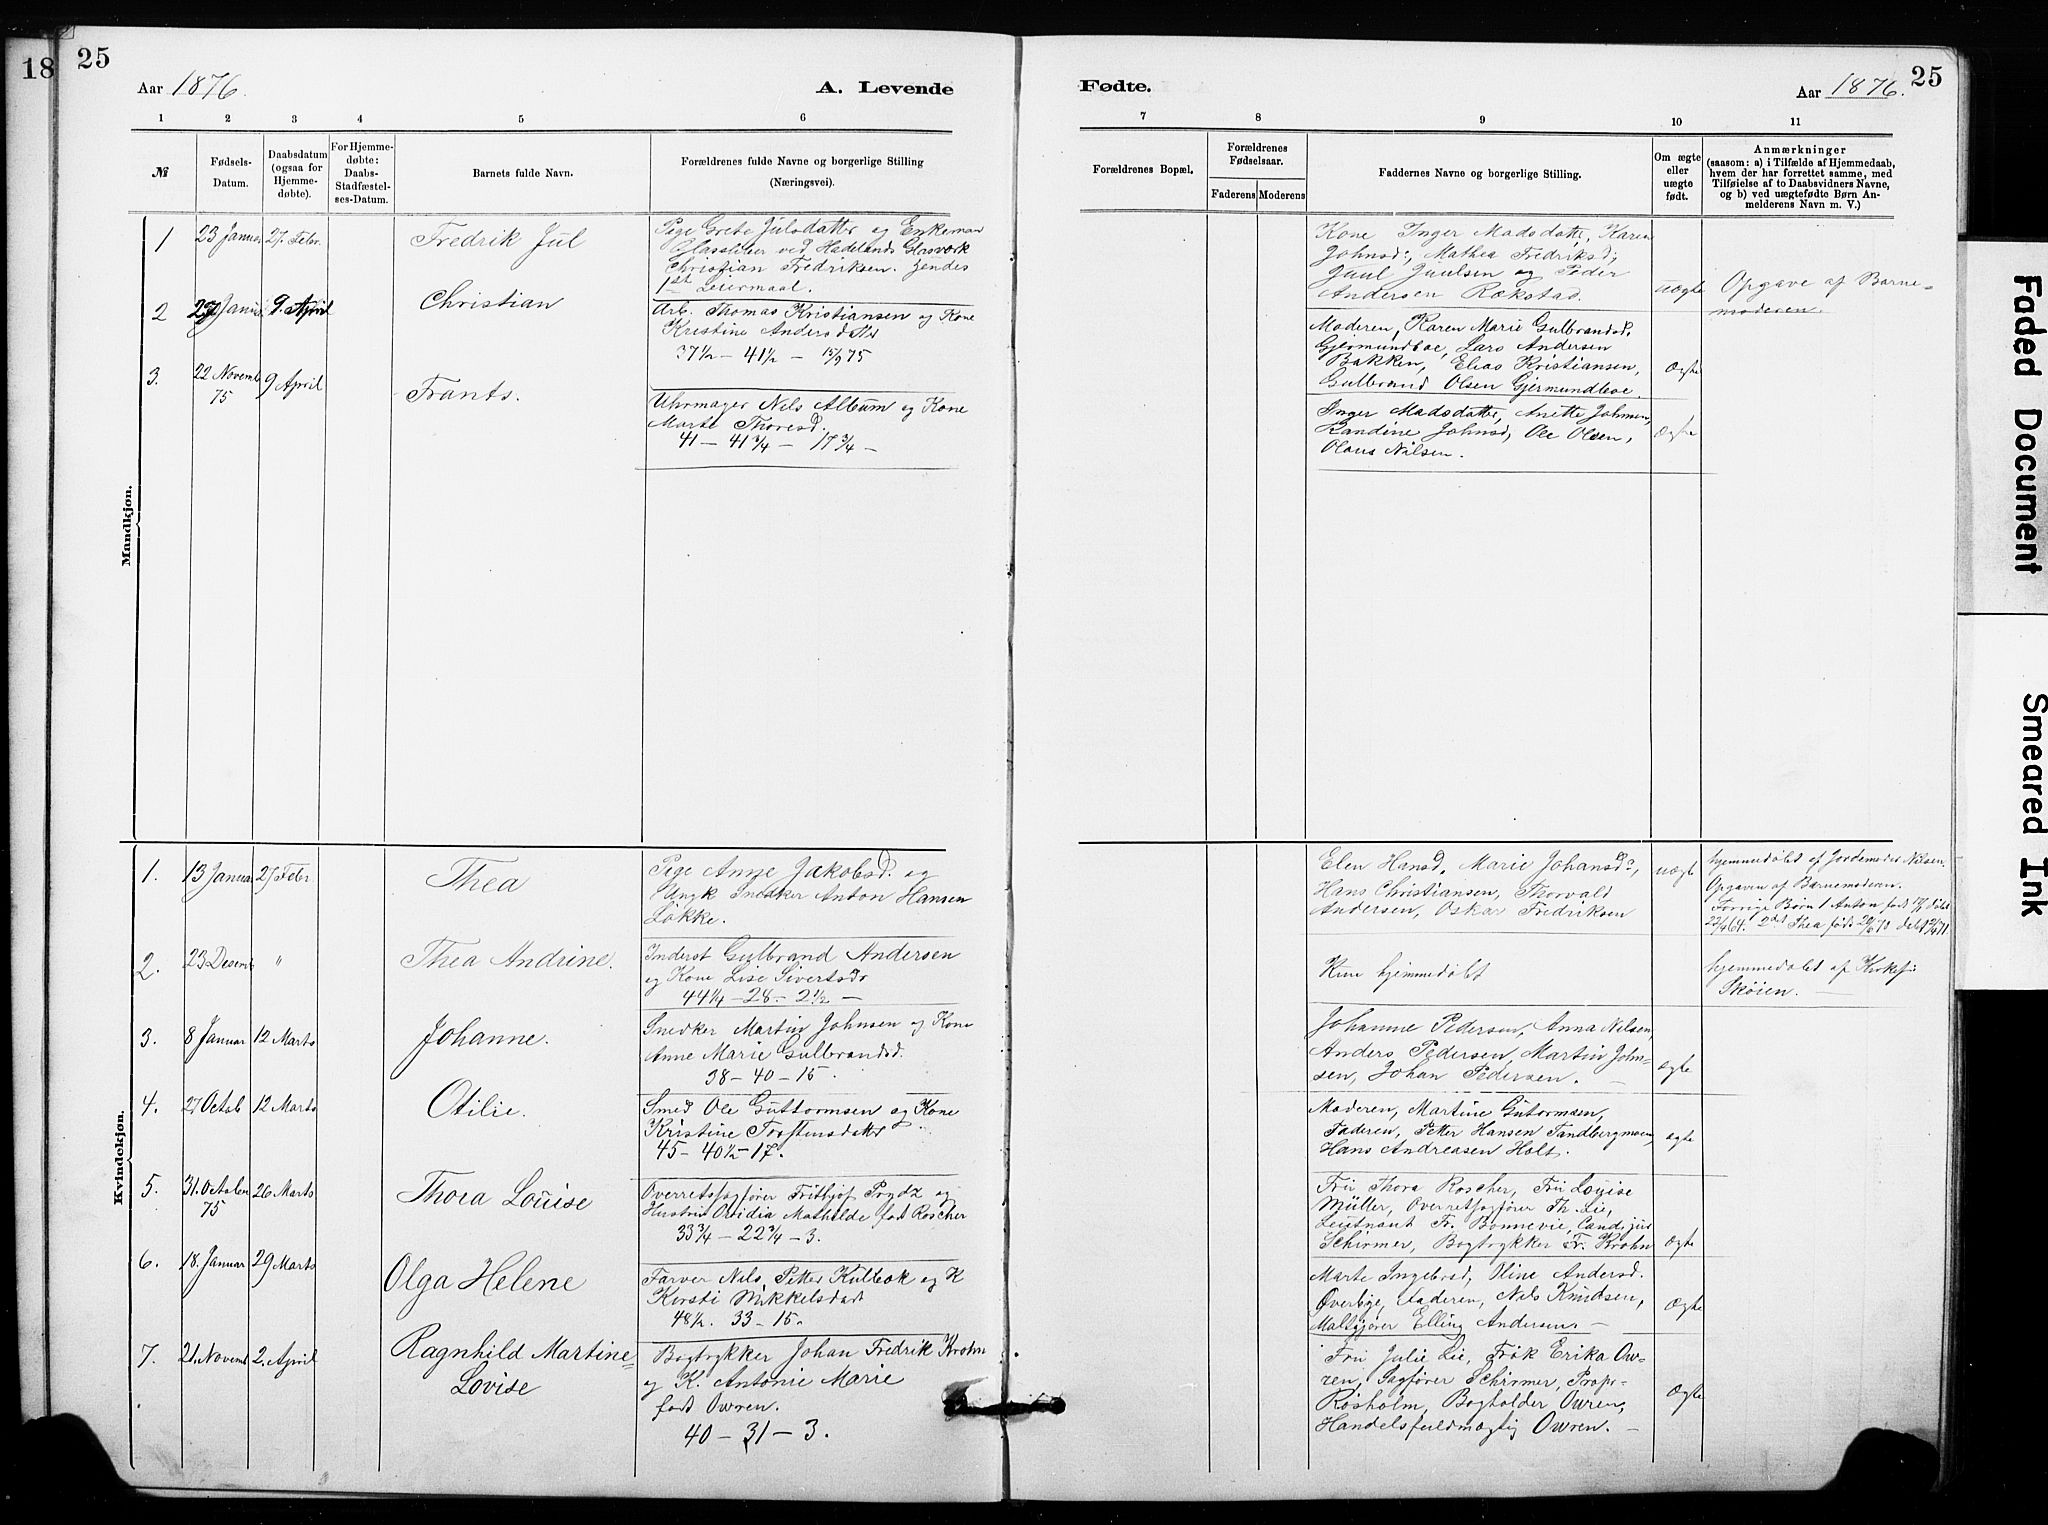 18
25
Aar 1876.
A. Levende
Fødte.
Aar 1876.
25
1 2 3 4 5 6
7 8 9 10 11
№
Fødsels-
Datum.
Daabsdatum
(ogsaa for
Hjemme-
døbte).
For Hjemme-
døbte:
Daabs-
Stadfæstel-
ses-Datum.
Barnets fulde Navn.
Forældrenes fulde Navne og borgerlige Stilling
(Næringsvei).
Forældrenes Bopæl.
Forældrenes
Fødselsaar.
Faderens Moderens
Faddernes Navne og borgerlige Stilling.
Om ægte
eller
uægte
født.
Anmærkninger
(saasom: a) i Tilfælde af Hjemmedaab,
hvem der har forrettet samme, med
Tilføielse af to Daabsvidners Navne,
og b) ved uægtefødte Børn An-
melderens Navn m. V.)
Mandkjøn.
1 23 Januar 27. Febr. Fredrik Jul
Pige Grete Julsdatter og Enkeman
Glassliber ved Hadelands Glasværk
Christian Fredriksen. Hendes
1st Leiermaal.
Kone Inger Madsdatte, Karen
Johnsd:, Mathea Fredriksd;
Juul Juulsen og Peder
Andersen Rækstad.
uægte
Opgave af Barne-
moderen.
2 Januar 9. April Christian
Arb. Thomas Kristiansen og Kone
Kristine Andersdatter
37½ – 41½ – 15/9 75
Moderen, Karen Marie Gulbrandsd.
Gjermundboe, Lars Andersen
Bakken, Elias Kristiansen,
Gulbrand Olsen Gjermundboe.
Ægte
3. 22 Novemb 75 9 April Frants.
Uhrmager Nils Album og Kone
Marte Thoresd.
41 – 41¾ – 17¾ –
Inger Madsdatter, Anette Johnsen,
Randine Johnsd, Ole Olsen,
Olaus Nilsen.
Ægte
Kvindekjøn.
1. 13 Januar 27 Febr Thea
Pige Anne Jakobsd. og
Ungk Snedker Anton Hansen
Løkke.
Elen Hansd, Marie Johansd:,
Hans Christiansen, Thorvald
Andersen, Oskar Fredriksen
uægte
hjemmedøbt af Jordemoder Nilsen.
Opgaven af Barnemoderen.
Forrige Børn 1 Anton født døbt
64. 2det Thea født 70 døbt 71
2. 23 Desemb " Thea Andrine.
Inderst Gulbrand Andersen
og Kone Lise Sivertsdr
44¼ – 28 – 2½ –
Kun hjemmedøbt
hjemmedøbt af Kirkes:
Skøien. –
3. 8 Januar 12 Marts Johanne.
Snedker Martin Johnsen og Kone
Anne Marie Gulbrandsd.
38 – 40 – 15.
Johanne Pedersen, Anna Nilsen,
Anders Pedersen, Martin John-
sen, Johan Pedersen. –
ægte
4. 27 Octob 12 Marts Otilie.
Smed Ole Guttormsen og Kone
Kristine Torstensdatter.
45 – 40½ – 17.
Moderen, Martine Gutormsen,
Faderen, Petter Hansen Tandbergmoen,
Hans Andreasen Holt.
ægte
5. 31. Octoben 75 26 Marts Thora Louise
Overretssagfører Frithjof Prydz og
Hustru Ovidia Mathilde født Roscher
33¾ – 22¾ – 3.
Fru Thora Roscher, Fru Louise
Müller, Overretssagfører Th. Lie,
Leutnant Fr. Bonnevie, Cand. jus
Schirmer, Bogtrykker Fr. Krohn
Ægte
6. 18. Januar 29 Marts Olga Helene
Farver Nils Petter Kulbak og K
Kirsti Mikkelsdatt
48½. 33 – 15.
Marte Ingebrsd, Oline Andersd.
Øverbye, Faderen, Nils Knudsen,
Maltgjører Elling Andersen. –
Ægte
7. 21. Novemb 2. April Ragnhild Martine
Lovise
Bogtrykker Johan Fredrik Krohn
og K. Antonie Marie
født Owren.
40 – 31 – 3.
Fru Julie Lie, Frøk Erika Ow-
ren, Sagfører Schirmer, Propr.
Røsholm, Bogholder Owren,
Handelsfuldmægtig Owren. –
Ægte
Faded Document
Smeared Ink